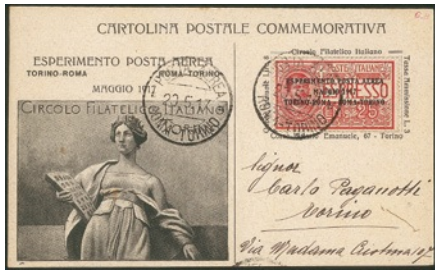 CARTOLINA POSTALE COMMEMORATIVA
ESPERIMENTO POSTA AEREA
TORINO-ROMA ROMA-TORINO
MAGGIO 1917
CIRCOLO FILATELICO ITALIANO
TORINO
Circolo Filatelico Italiano
ESPERIMENTO POSTA AEREA
MAGGIO 1917
TORINO-ROMA · ROMA-TORINO
25
Corso Vittorio Emanuele, 67 - Torino
Signor
Carlo Paganotti
Torino
Via Madama